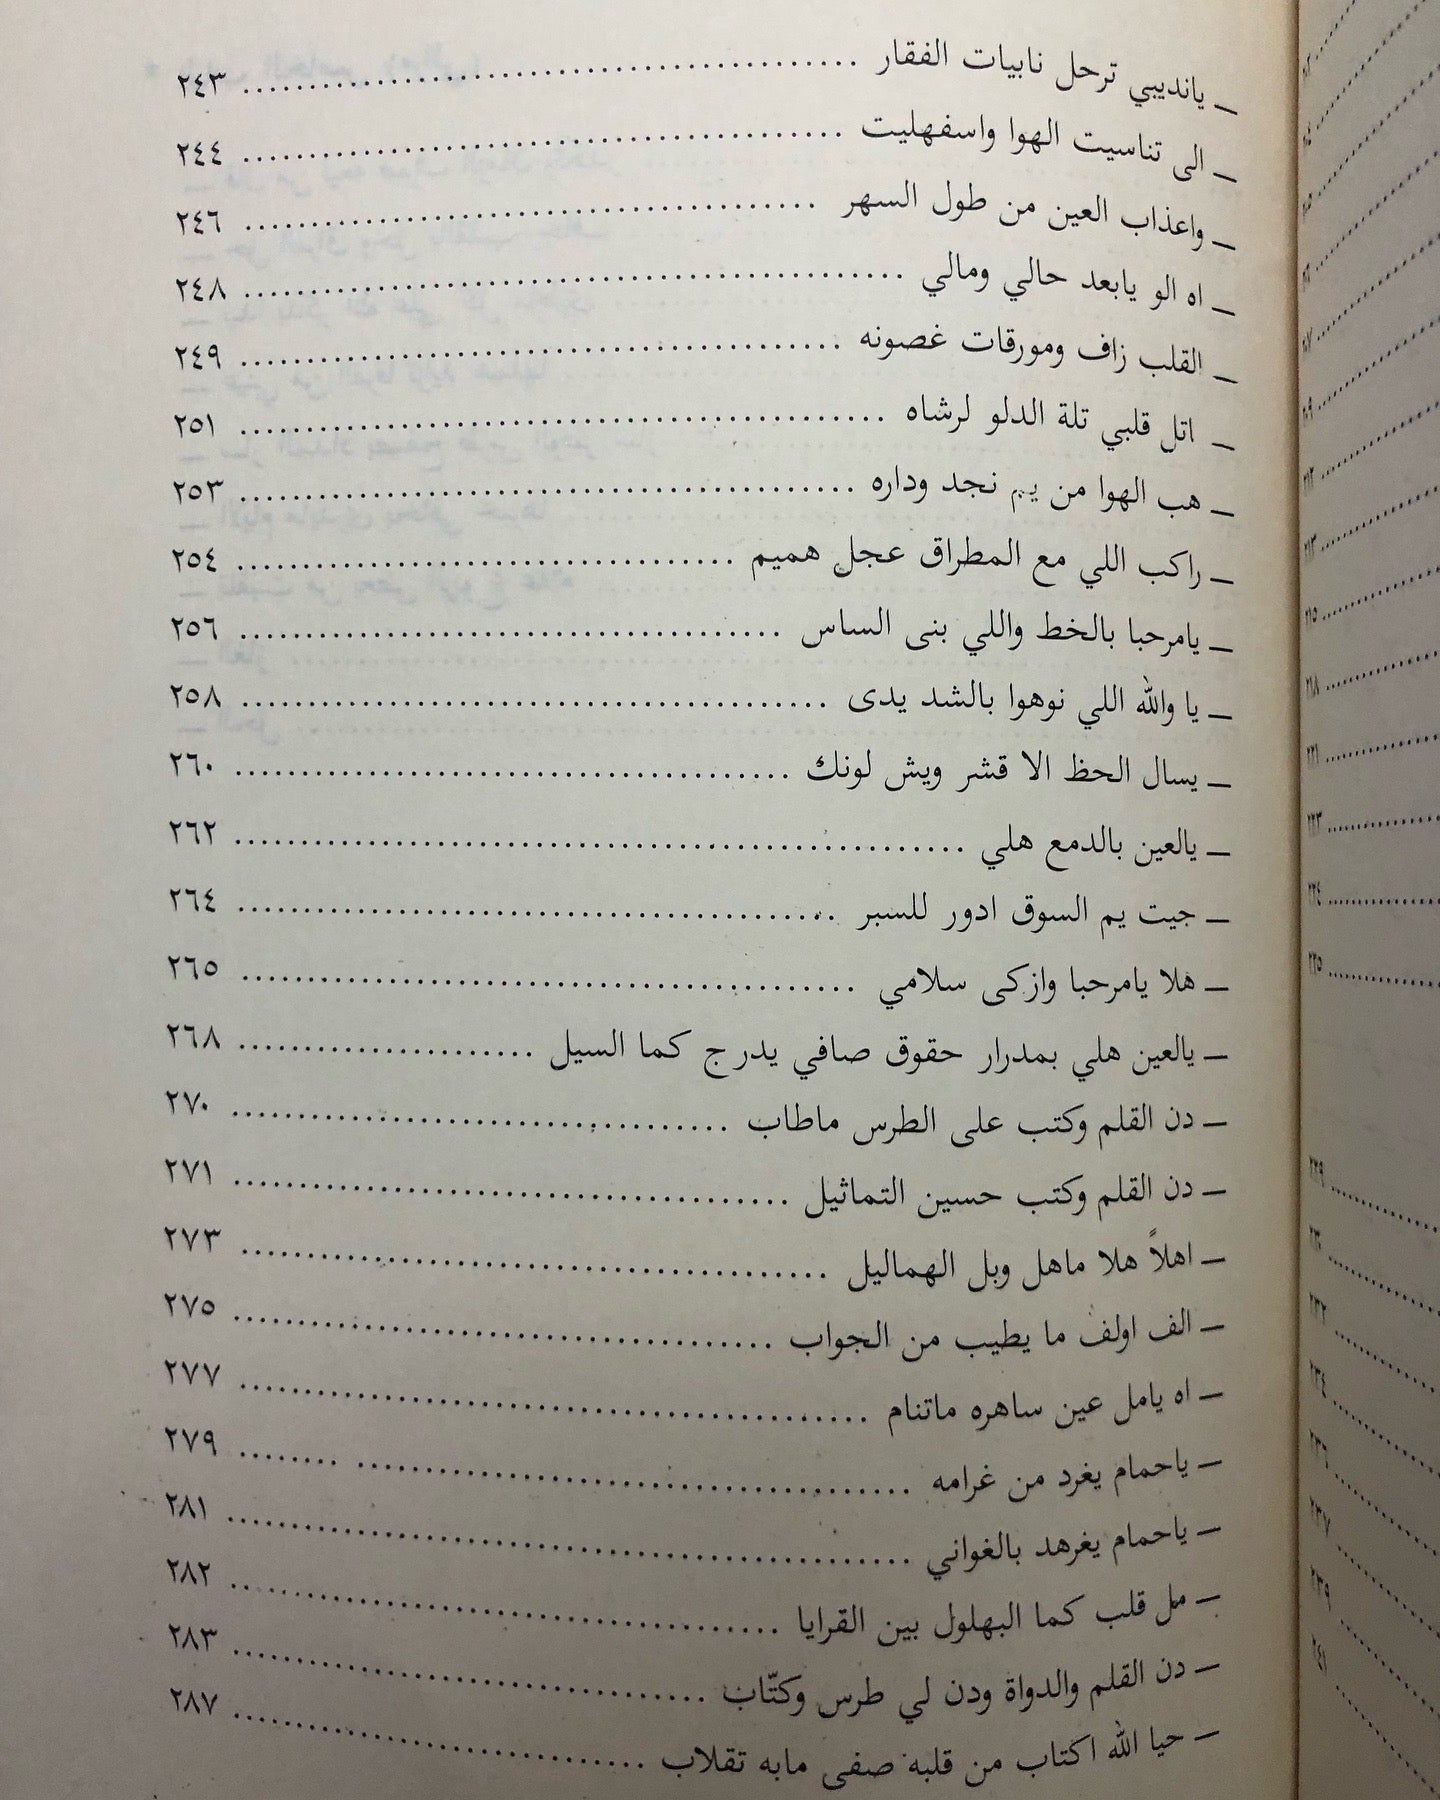 ـ يانديبي ترحل نابيات الفقار ........ ٢٤٣
ـ الى تناسيت الهوا واسفهليت ........ ٢٤٤
ـ واعذاب العين من طول السهر ........ ٢٤٦
ـ اه الو يابعد حالي ومالي ........ ٢٤٨
ـ القلب زاف ومورقات غصونه ........ ٢٤٩
ـ اتل قلبي تلة الدلو لرشاه ........ ٢٥١
ـ هب الهوا من يم نجد وداره ........ ٢٥٣
ـ راكب اللي مع المطراق عجل هميم ........ ٢٥٤
ـ يامرحبا بالخط واللي بنى الساس ........ ٢٥٦
ـ يا والله اللي نوهوا بالشد يدى ........ ٢٥٨
ـ يسال الحظ الا قشر ويش لونك ........ ٢٦٠
ـ يالعين بالدمع هلي ........ ٢٦٢
ـ جيت يم السوق ادور للسبر ........ ٢٦٤
ـ هلا يامرحبا وازكى سلامي ........ ٢٦٥
ـ يالعين هلي بمدرار حقوق صافي يدرج كما السيل ........ ٢٦٨
ـ دن القلم وكتب على الطرس ماطاب ........ ٢٧٠
ـ دن القلم وكتب حسين التماثيل ........ ٢٧١
ـ اهلاً هلا ماهل وبل الهماليل ........ ٢٧٣
ـ الف اولف ما يطيب من الجواب ........ ٢٧٥
ـ اه يامل عين ساهره ماتنام ........ ٢٧٧
ـ ياحمام يغرد من غرامه ........ ٢٧٩
ـ ياحمام يغرهد بالغواني ........ ٢٨١
ـ مل قلب كما البهلول بين القرايا ........ ٢٨٢
ـ دن القلم والدواة ودن لي طرس وكتّاب ........ ٢٨٣
ـ حيا الله اكتاب من قلبه صفى مابه تقلاب ........ ٢٨٧